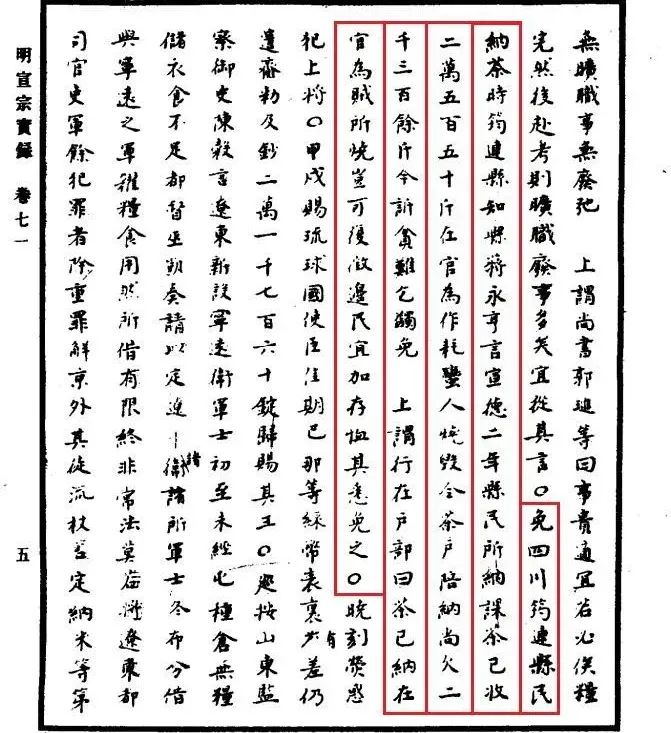 無曠職事無廢弛　上謂尚書郭璡等曰事貴適宜若必俟糧
完然後赴考則曠職廢事多矣宜從其言○免四川筠連縣民
納茶時筠連縣知縣蔣永亨言宣德二年縣民所納課茶已收
二萬五百五十斤在官為作耗蠻人燒毀令茶戶陪納尚欠二
千三百餘斤今訴貧難乞蠲免　上謂行在戶部曰茶已納在
官為賊所燒豈可復徵邊民宜加存恤其悉免之○晚刻熒惑
犯上將○甲戌賜琉球國使臣佳期巴那等綵幣表裏有差仍
遣齎勑及鈔二萬一千七百六十錠歸賜其王○巡按山東監
察御史陳瑴言遼東新設寧遠衛軍士初至未經屯種倉無糧
儲衣食不足都督巫凱奏請以定遼衛諸所軍士冬布分借
與寧遠之軍雜糧食用然所借有限終非常法莫若將遼東都
司官吏軍餘犯罪者除重罪解京外其徒流杖笞定納米等第
明宣宗實錄　卷七一　五